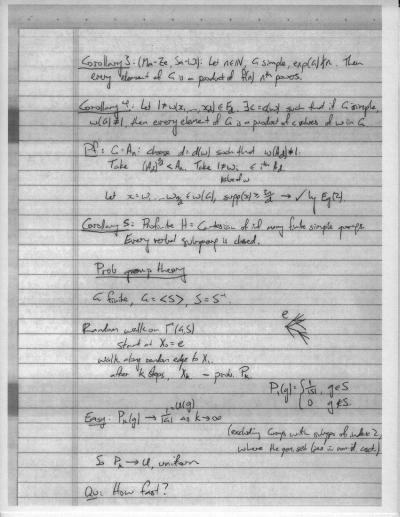 Corollary 3: (Mn-Ze, Sa-W): Let n∈ℕ, G simple, exp(G)∤n. Then
every element of G is a product of f(n) nth powers.
Corollary 4: Let 1≠w(x₁,...,x_d)∈F_d, ∃c=c(w) such that if G simple,
w(G)≠1, then every element of G is a product of c values of w in G.
Pf: G=Aₙ: choose d=d(w) such that w(A_d)≠1.
Take (A_d)^{n/d} < Aₙ. Take 1≠wᵢ ∈ ith A_d
value of w
Let x = w₁...w_{n/d} ∈ w(G), supp(x) ≥ → ✓ by Eg(2)
Corollary 5: Profinite H = Cartesian of inf many finite simple groups.
Every verbal subgroup is closed.
Prob group theory
G finite, G=<S>, S=S⁻¹.
e
Random walk on Γ(G,S)
start at X₀=e
walk along random edge to X₁
after k steps, X_k ~ prob. P_k
P₁(g) = { 1/|S|, g∈S
0 g∉S
Easy: P_k(g) → 1/|G| = U(g) as k→∞
(excluding Groups with subgps of index 2,
where the gen. set lies in non-id coset)
So P_k → U, uniform
Qu: How fast?